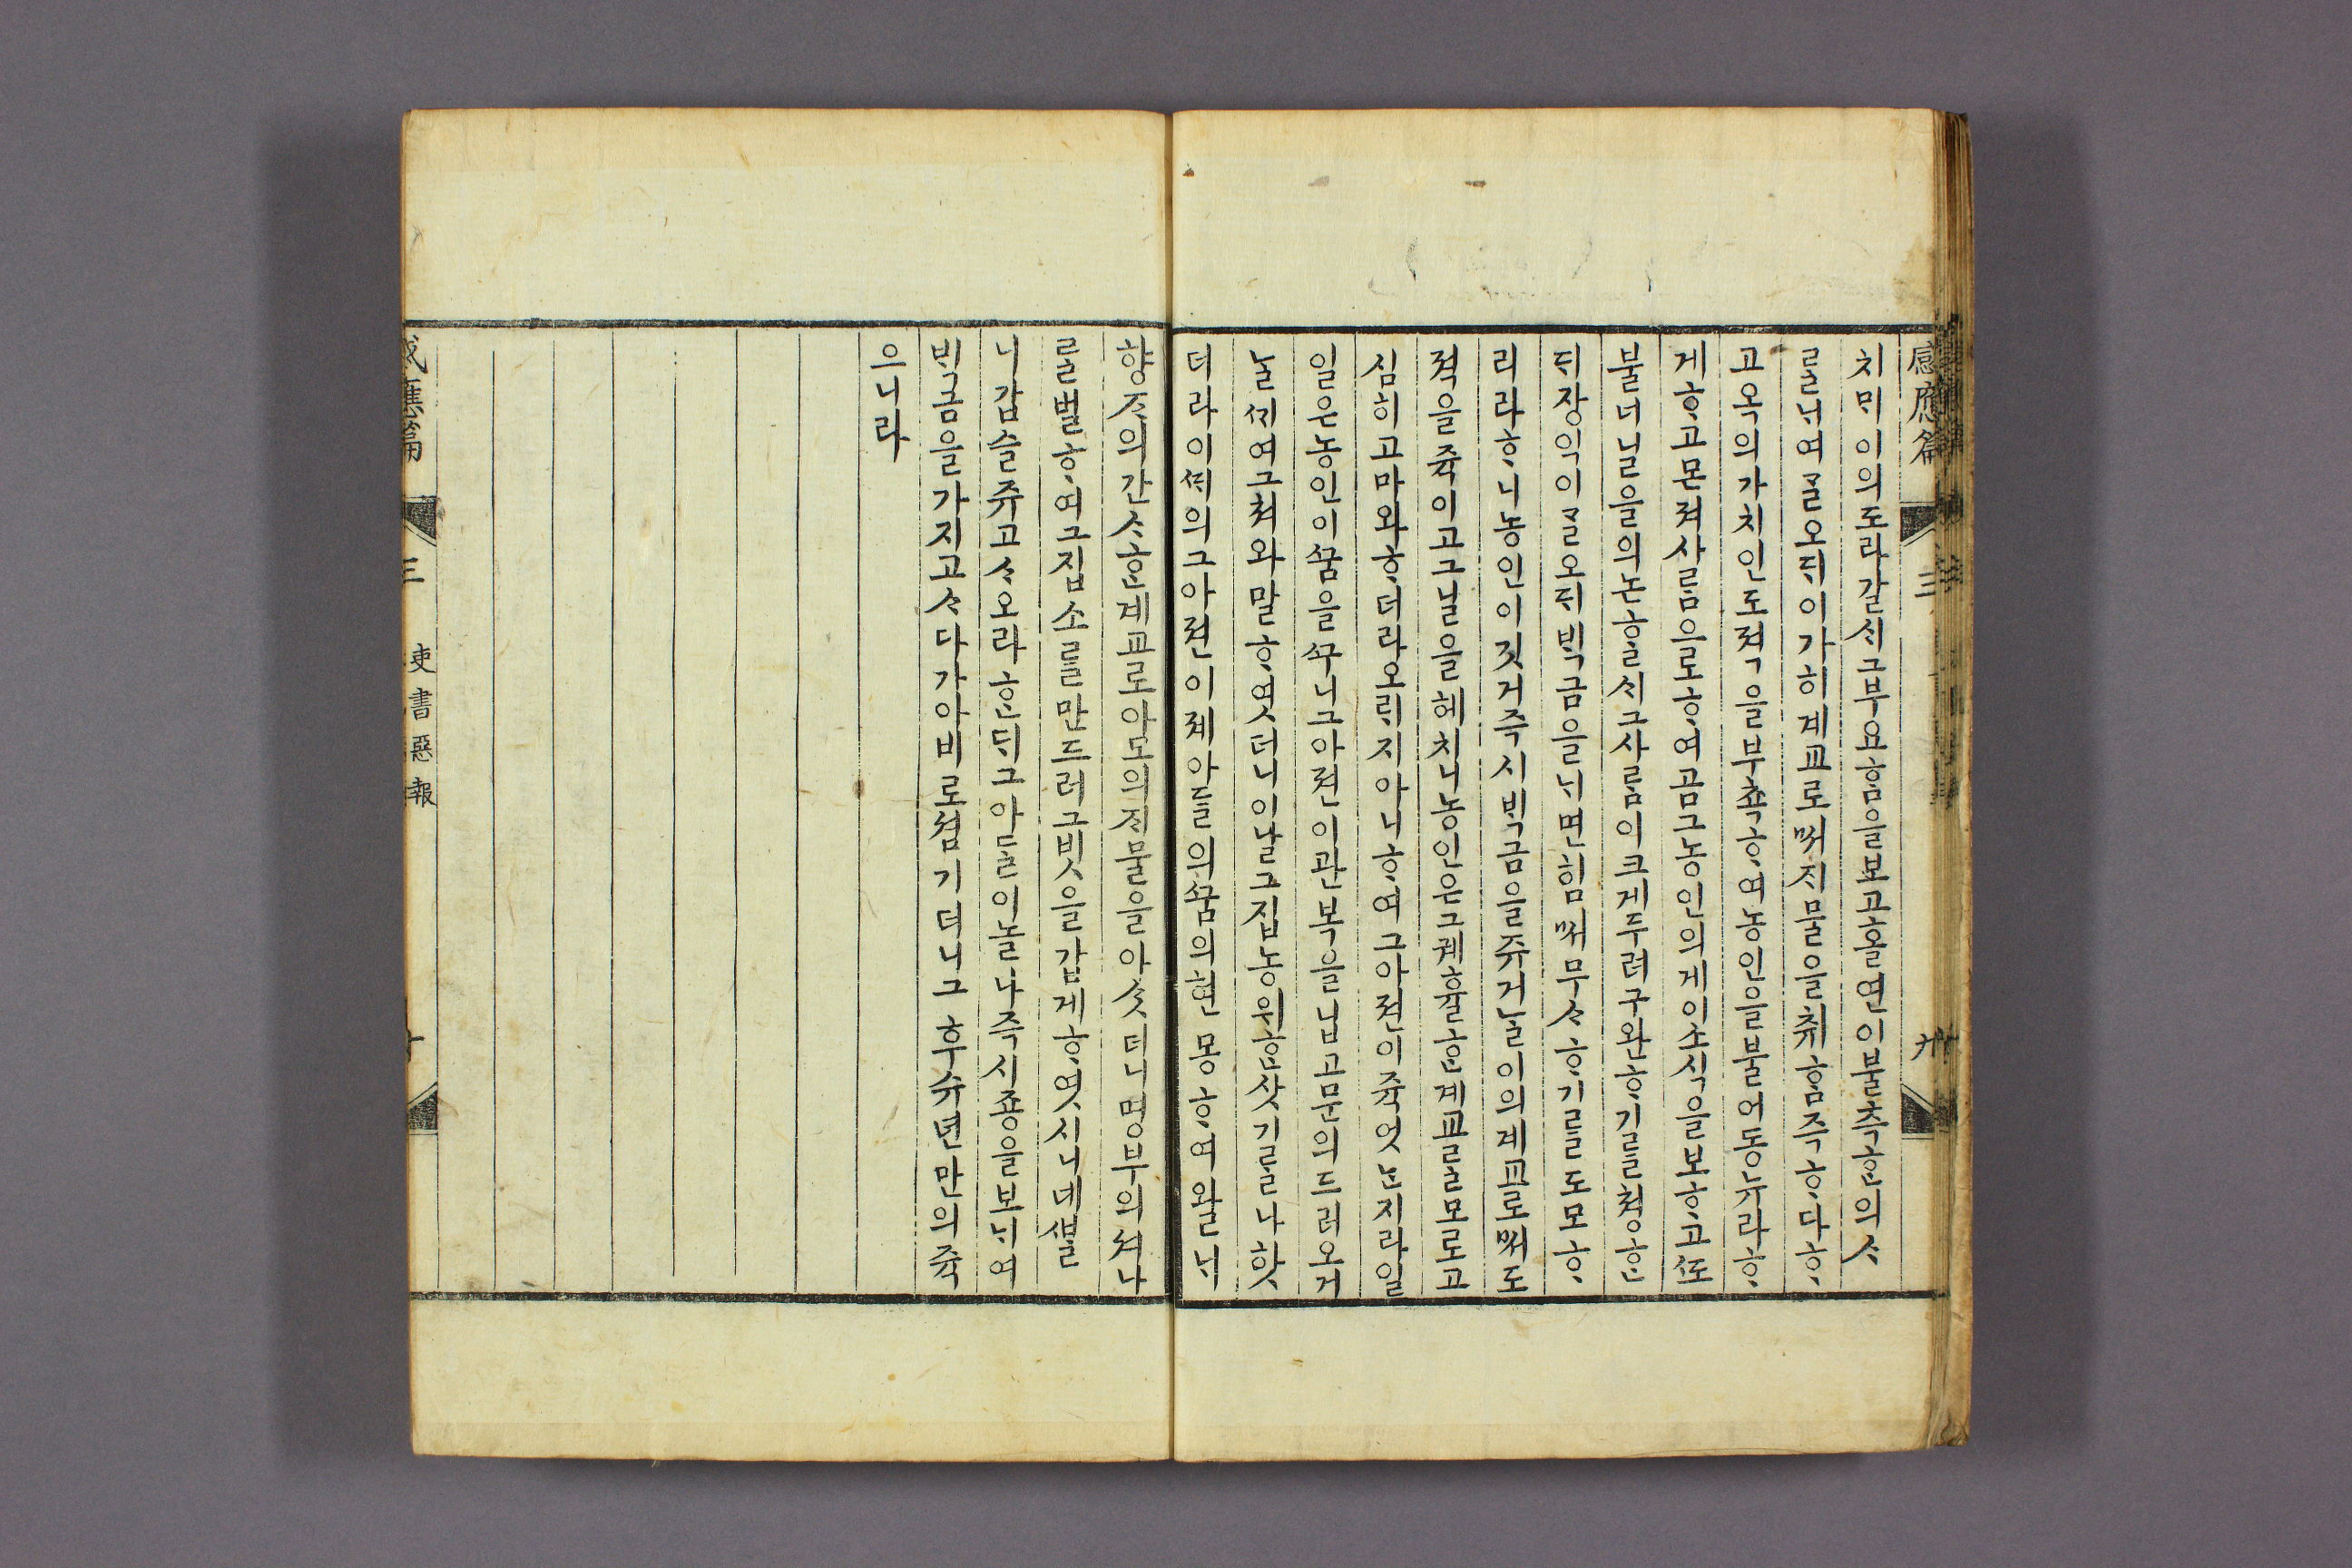 感應篇 三 九
치ᄆᆡ이의도라갈ᄉᆡ그부요ᄒᆞᆷ을보고홀연이불측ᄒᆞᆫ의ᄉᆞ
ᄅᆞᆯᄂᆡ여ᄀᆞᆯ오ᄃᆡ이가히계교로ᄡᅥᄌᆡ물을ᄎᆔᄒᆞᆷ죽ᄒᆞ다ᄒᆞ
고옥의가치인도젹을부쵹ᄒᆞ여농인을물어동뉴라ᄒᆞ
게ᄒᆞ고몬져사ᄅᆞᆷ으로ᄒᆞ여곰그농인의게이소식을보ᄒᆞ고ᄯᅩ
불더닐을의논ᄒᆞᆯᄉᆡ그사ᄅᆞᆷ이크게두려구완ᄒᆞ기ᄅᆞᆯ쳥ᄒᆞᆫ
ᄃᆡ쟝익이ᄀᆞᆯ오ᄃᆡᄇᆡᆨ금을ᄂᆡ면힘ᄡᅥ무ᄉᆞᄒᆞ기ᄅᆞᆯ도모ᄒᆞ
리라ᄒᆞ니농인이깃거즉시ᄇᆡᆨ금을쥬거ᄂᆞᆯ이의계교로ᄡᅥ도
젹을쥭이고그닐을헤치니농인은그궤휼ᄒᆞᆫ계교ᄅᆞᆯ모로고
심히고마와ᄒᆞ더라오ᄅᆡ지아니ᄒᆞ여그아젼이쥭엇ᄂᆞᆫ지라일
일은농인이ᄭᅮᆷ을ᄭᅮ니그아젼이관복을닙고문의드러오거
ᄂᆞᆯᄭᆡ여그쳐와말ᄒᆞ엿더니이날그집농위ᄒᆞᆫ삿기ᄅᆞᆯ나핫
더라이ᄯᆡ의그아젼이졔아들의ᄭᅮᆷ의현몽ᄒᆞ여왈ᄂᆡ
향ᄌᆞ의간ᄉᆞᄒᆞᆫ계교로아모의ᄌᆡ물을아ᄉᆞᆺ더니명부의셔나
ᄅᆞᆯ벌ᄒᆞ여그집소ᄅᆞᆯ만드러그빗을갑게ᄒᆞ엿시니네ᄲᆞᆯ
니갑슬쥬고ᄉᆞ오라ᄒᆞᆫᄃᆡ그아ᄃᆞᆯ이놀나즉시죵을보ᄂᆡ여
ᄇᆡᆨ금을가지고ᄉᆞ다가아비로셤기더니그후수년만의쥭
으니라
感應篇 三 吏書惡報